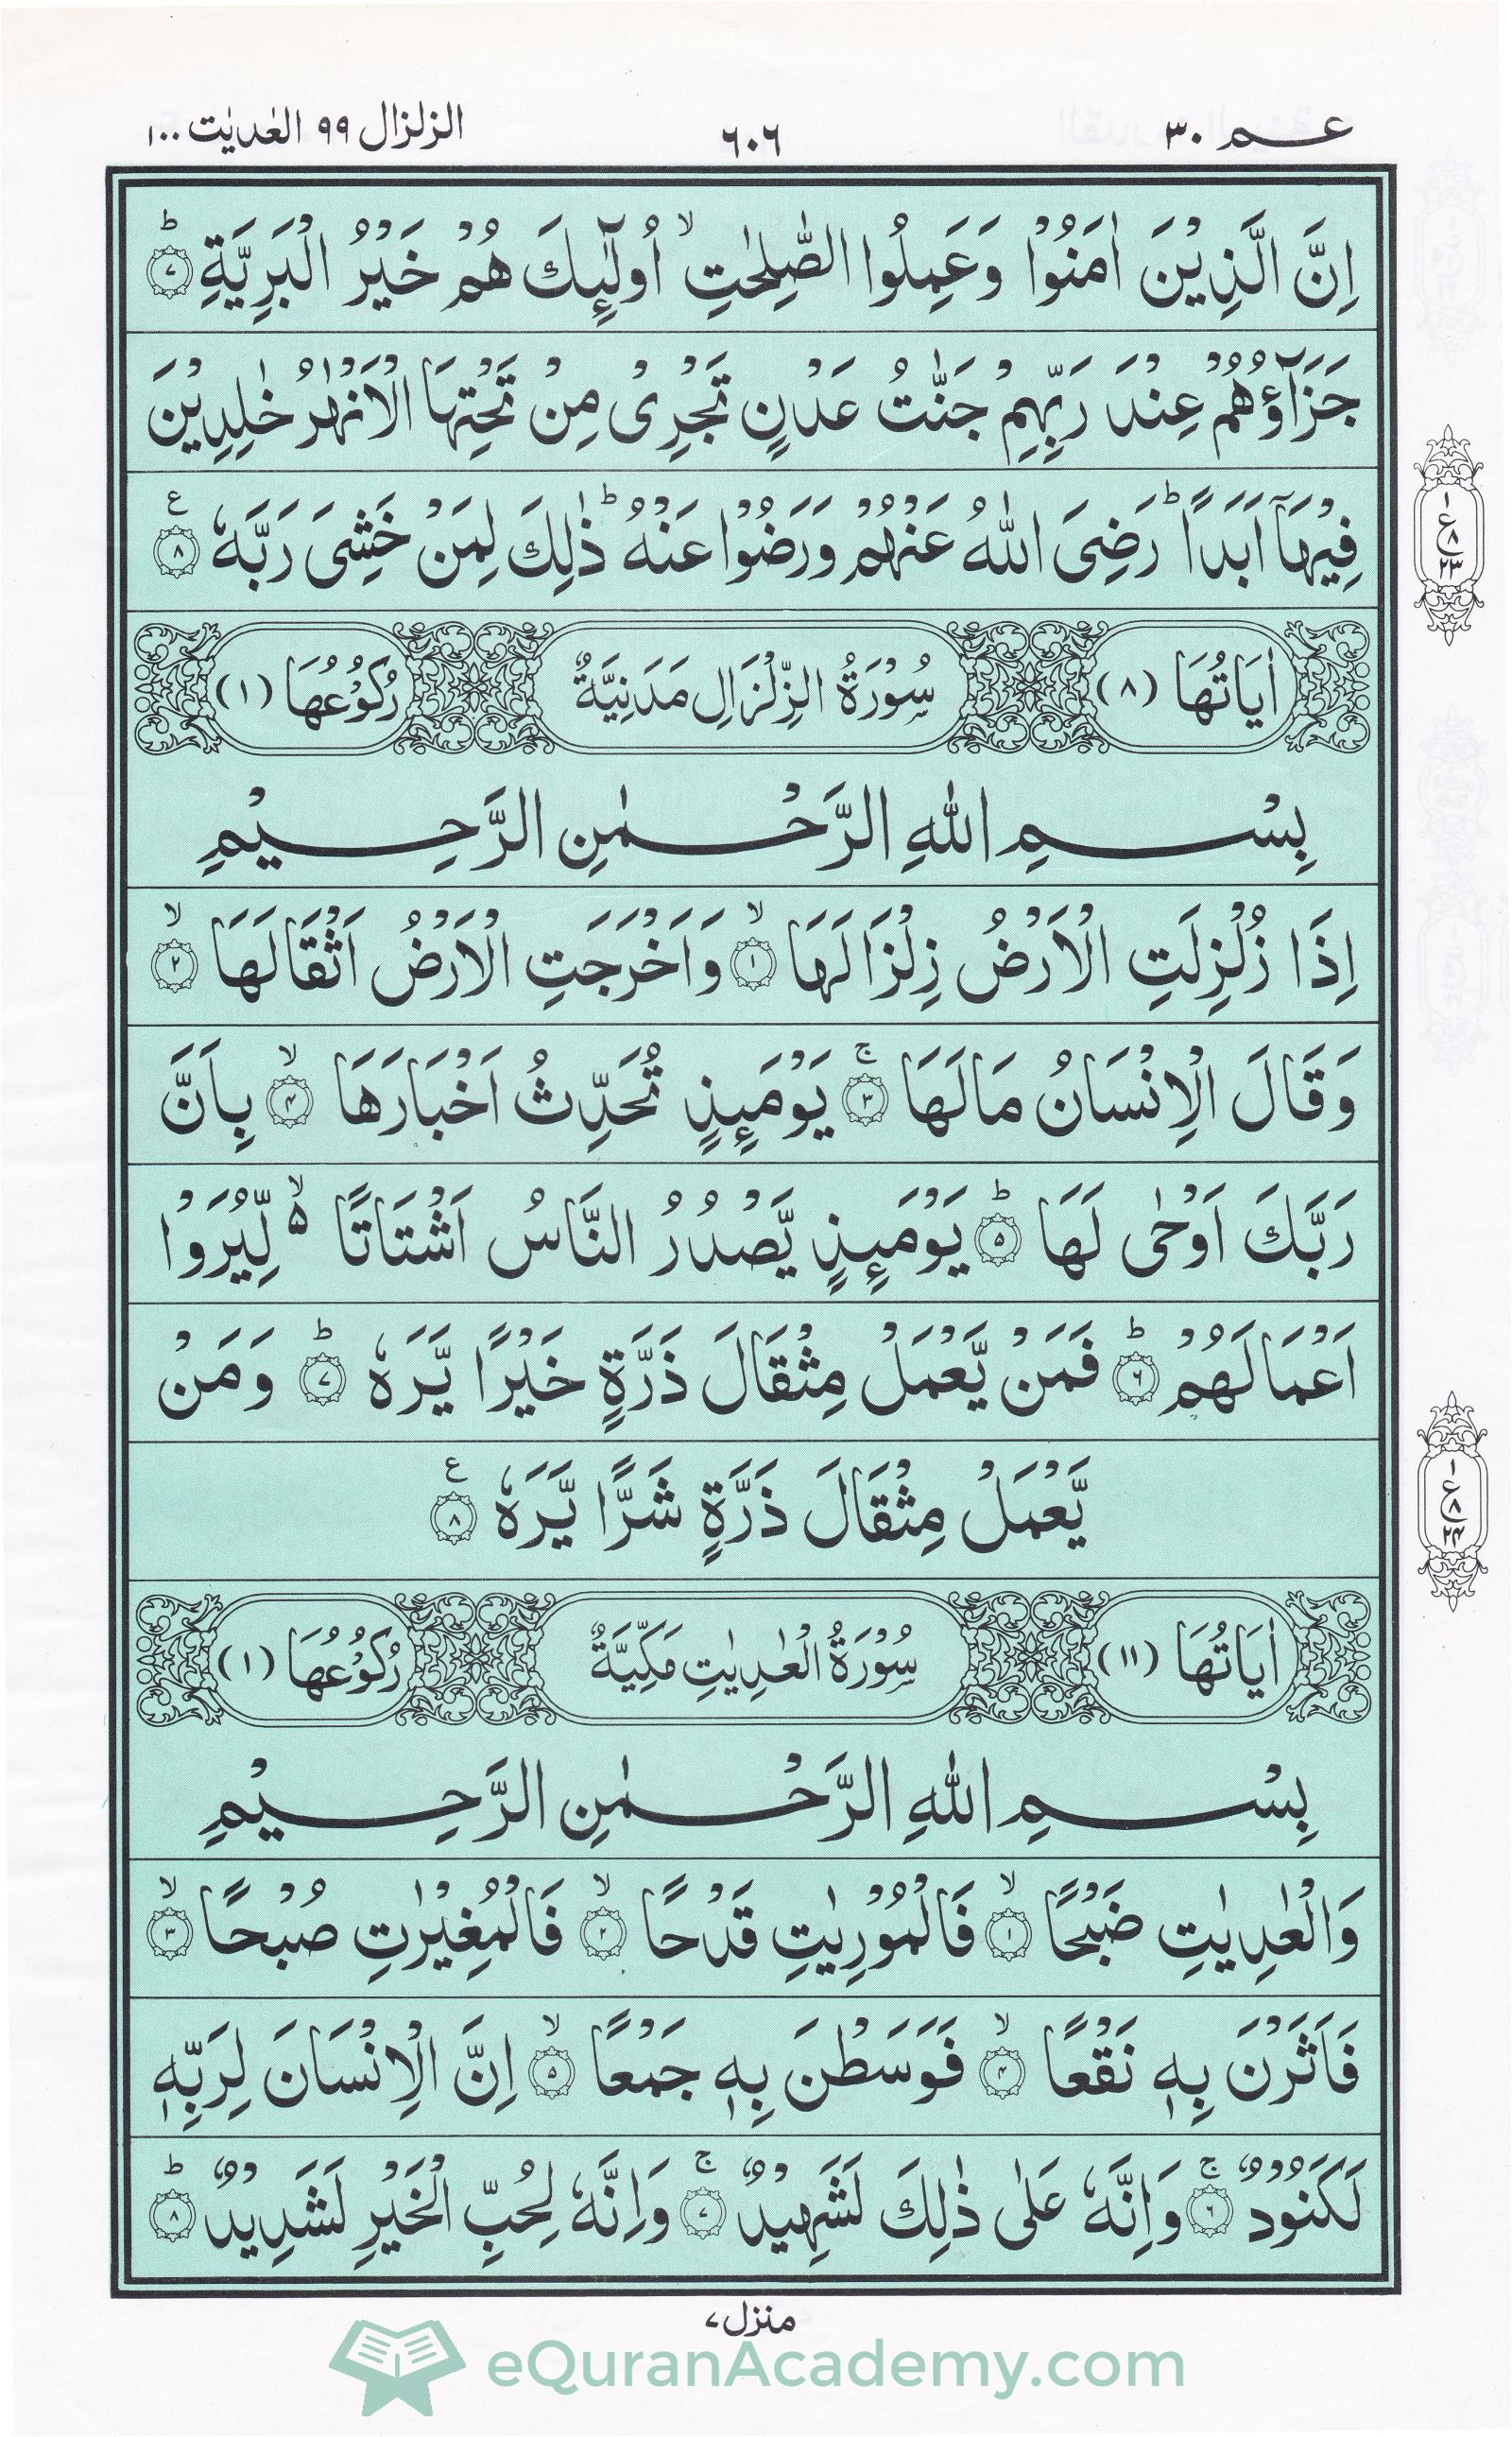 عم ٣٠
٦٠٦
الزلزال ٩٩ العٰدیٰت ١٠٠
اِنَّ الَّذِیْنَ اٰمَنُوْا وَعَمِلُوا الصّٰلِحٰتِ ۙ اُولٰٓئِكَ هُمْ خَیْرُ الْبَرِیَّةِ ؕ﴿۷﴾
جَزَآؤُهُمْ عِنْدَ رَبِّهِمْ جَنّٰتُ عَدْنٍ تَجْرِیْ مِنْ تَحْتِهَا الْاَنْهٰرُ خٰلِدِیْنَ
فِیْهَاۤ اَبَدًا ؕ رَضِیَ اللّٰهُ عَنْهُمْ وَرَضُوْا عَنْهُ ؕ ذٰلِكَ لِمَنْ خَشِیَ رَبَّهٗ ﴿۸﴾ ع
١
ع
٨
٢٣
اٰیَاتُهَا (٨)
سُوْرَةُ الزِّلْزَالِ مَدَنِیَّةٌ
رُكُوْعُهَا (١)
بِسْمِ اللّٰهِ الرَّحْمٰنِ الرَّحِیْمِ
اِذَا زُلْزِلَتِ الْاَرْضُ زِلْزَالَهَا ۙ﴿۱﴾ وَاَخْرَجَتِ الْاَرْضُ اَثْقَالَهَا ۙ﴿۲﴾
وَقَالَ الْاِنْسَانُ مَالَهَا ۚ﴿۳﴾ یَوْمَئِذٍ تُحَدِّثُ اَخْبَارَهَا ۙ﴿۴﴾ بِاَنَّ
رَبَّكَ اَوْحٰی لَهَا ؕ﴿۵﴾ یَوْمَئِذٍ یَّصْدُرُ النَّاسُ اَشْتَاتًا ۙ۵ لِّیُرَوْا
اَعْمَالَهُمْ ؕ﴿۶﴾ فَمَنْ یَّعْمَلْ مِثْقَالَ ذَرَّةٍ خَیْرًا یَّرَهٗ ؕ﴿۷﴾ وَمَنْ
یَّعْمَلْ مِثْقَالَ ذَرَّةٍ شَرًّا یَّرَهٗ ﴿۸﴾ ع
١
ع
٨
٢۴
اٰیَاتُهَا (١١)
سُوْرَةُ الْعٰدِیٰتِ مَكِّیَّةٌ
رُكُوْعُهَا (١)
بِسْمِ اللّٰهِ الرَّحْمٰنِ الرَّحِیْمِ
وَالْعٰدِیٰتِ ضَبْحًا ۙ﴿۱﴾ فَالْمُوْرِیٰتِ قَدْحًا ۙ﴿۲﴾ فَالْمُغِیْرٰتِ صُبْحًا ۙ﴿۳﴾
فَاَثَرْنَ بِهٖ نَقْعًا ۙ﴿۴﴾ فَوَسَطْنَ بِهٖ جَمْعًا ۙ﴿۵﴾ اِنَّ الْاِنْسَانَ لِرَبِّهٖ
لَكَنُوْدٌ ۚ﴿۶﴾ وَاِنَّهٗ عَلٰی ذٰلِكَ لَشَهِیْدٌ ۚ﴿۷﴾ وَاِنَّهٗ لِحُبِّ الْخَیْرِ لَشَدِیْدٌ ؕ﴿۸﴾
منزل ۷
eQuranAcademy.com